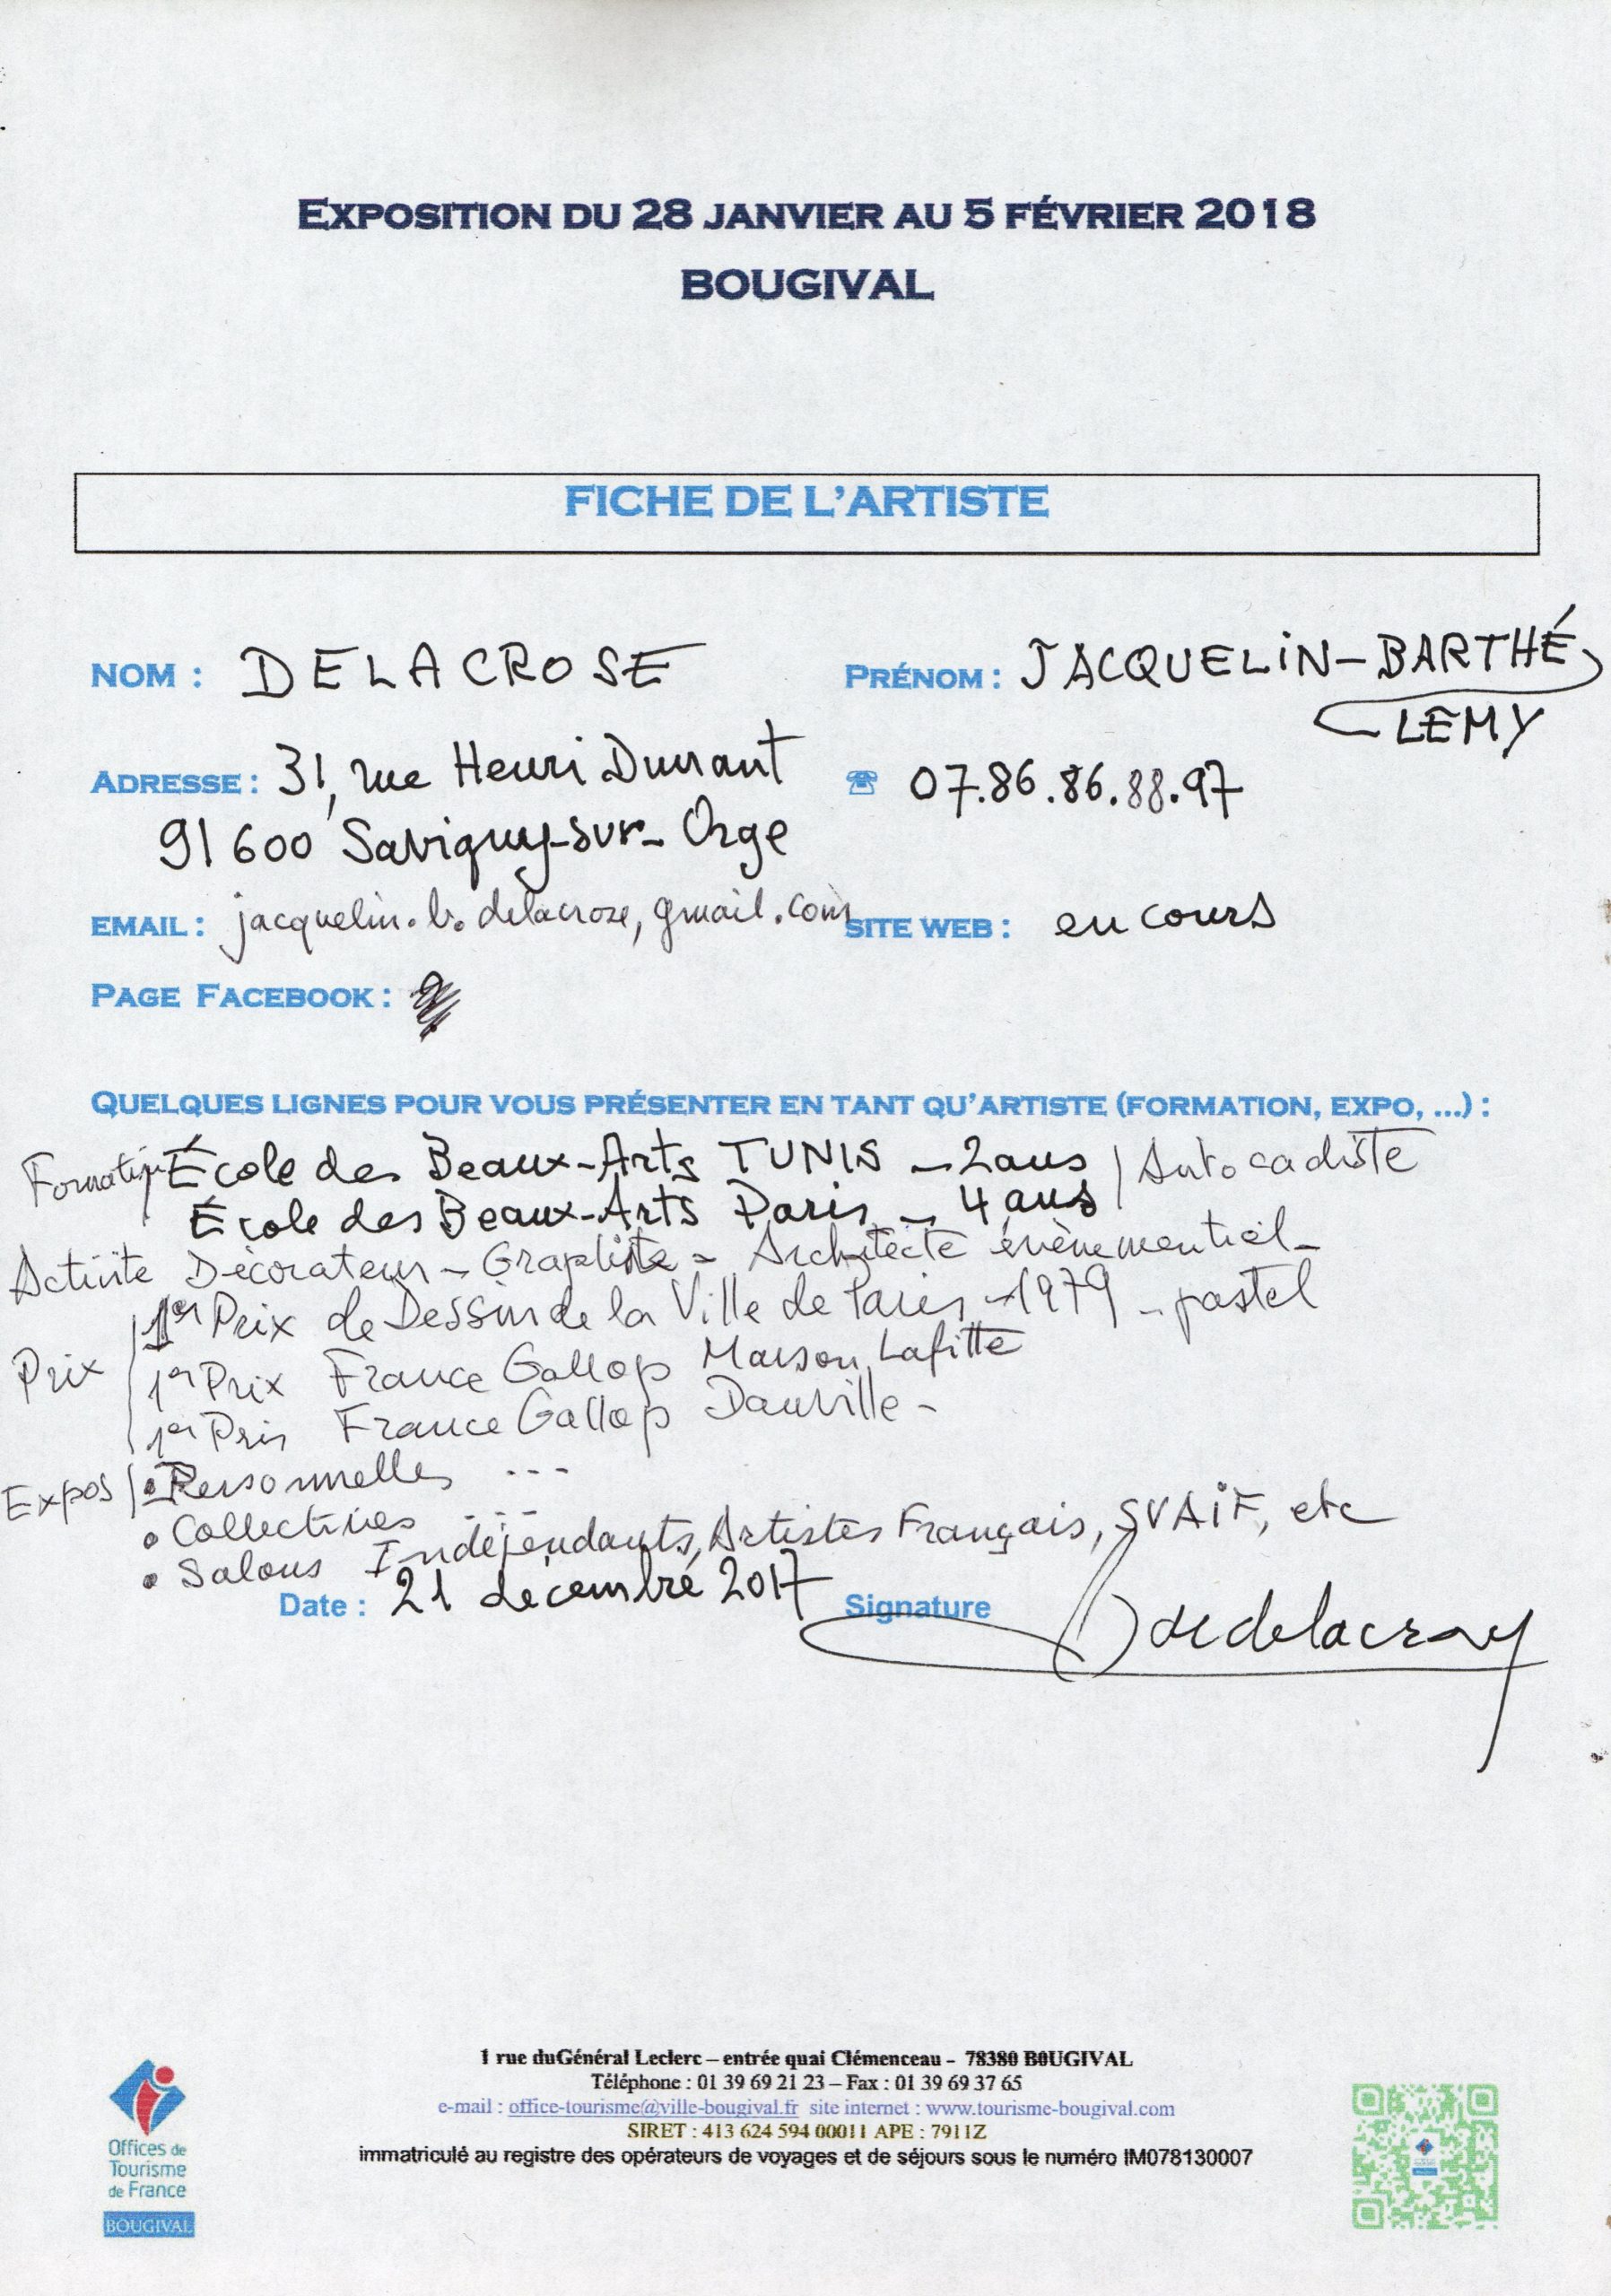 EXPOSITION DU 28 JANVIER AU 5 FÉVRIER 2018
BOUGIVAL
FICHE DE L'ARTISTE
NOM : DELACROSE
PRÉNOM : JACQUELIN-BARTHÉ
LEMY
ADRESSE : 31, rue Henri Dunant
☎ 07.86.86.88.97
91600 Savigny-sur-Orge
EMAIL : jacquelin.b.delacrose, gmail.com
SITE WEB : en cours
PAGE FACEBOOK :
QUELQUES LIGNES POUR VOUS PRÉSENTER EN TANT QU'ARTISTE (FORMATION, EXPO, ...) :
Formation École des Beaux-Arts TUNIS - 2 ans / Autocadiste
École des Beaux-Arts Paris - 4 ans
Activité Décorateur - Graphiste - Architecte évènementiel -
1er Prix de Dessin de la Ville de Paris - 1979 - pastel
Prix 1er Prix France Gallop Maison Lafitte
1er Prix France Gallop Dauville -
Expos • Personnelles ...
• Collectives ...
• Salons Indépendants, Artistes Français, SVAIF, etc
Date : 21 décembre 2017
Signature
1 rue duGénéral Leclerc – entrée quai Clémenceau - 78380 BOUGIVAL
Téléphone : 01 39 69 21 23 – Fax : 01 39 69 37 65
e-mail : office-tourisme@ville-bougival.fr site internet : www.tourisme-bougival.com
SIRET : 413 624 594 00011 APE : 7911Z
immatriculé au registre des opérateurs de voyages et de séjours sous le numéro IM078130007
Offices de
Tourisme
de France
BOUGIVAL